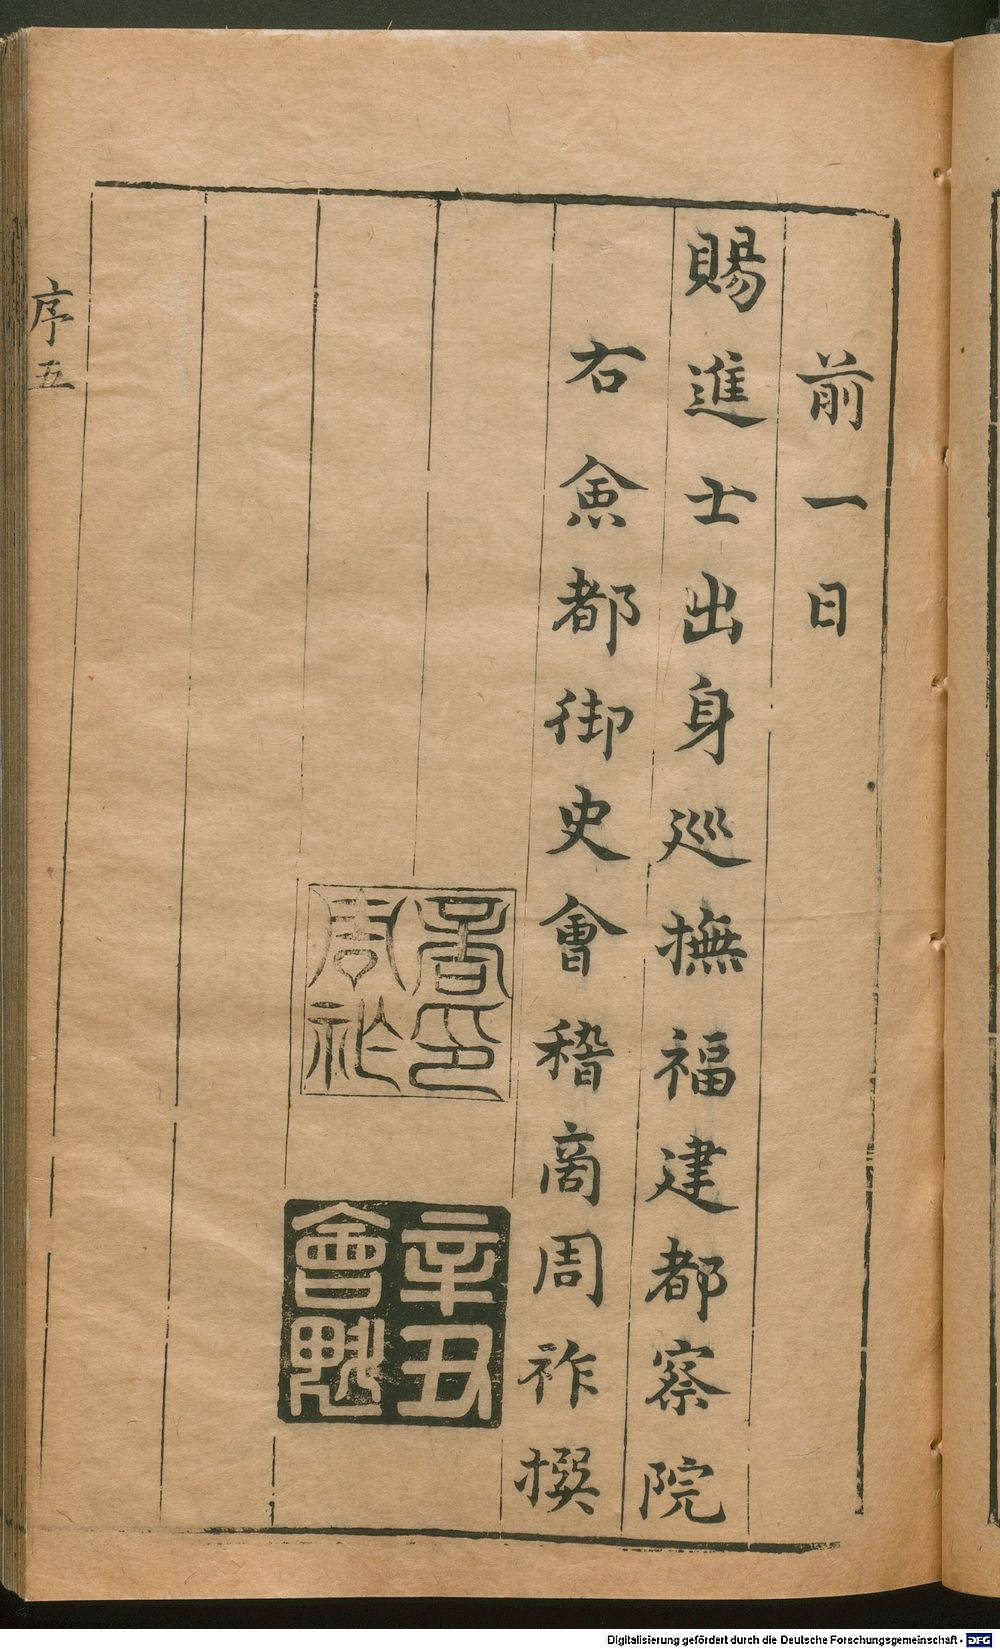 前一日
賜進士出身巡撫福建都察院
右僉都御史會稽商周祚撰
商印周祚
辛丑會魁
序五
Digitalisierung gefördert durch die Deutsche Forschungsgemeinschaft - DFG